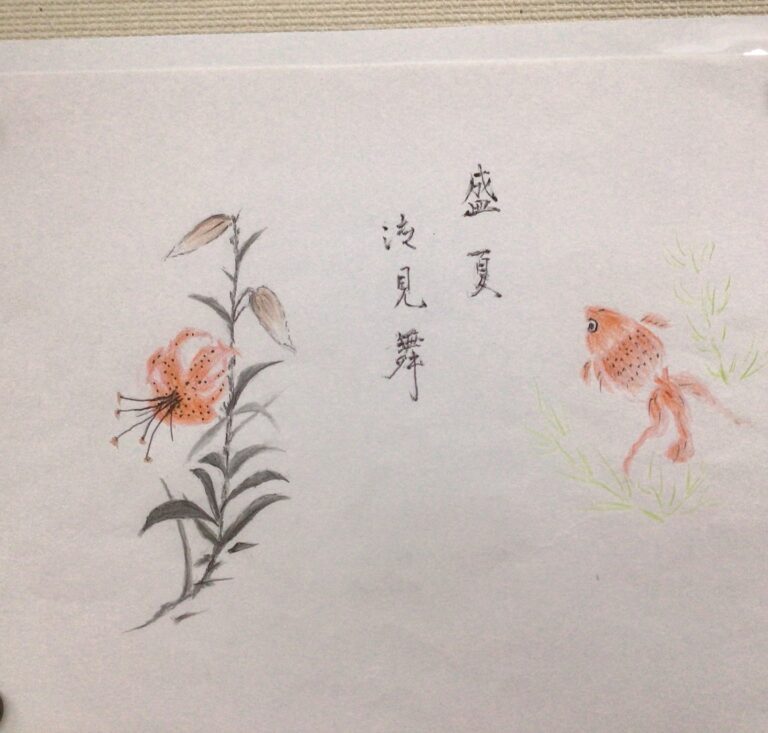 盛夏
見舞